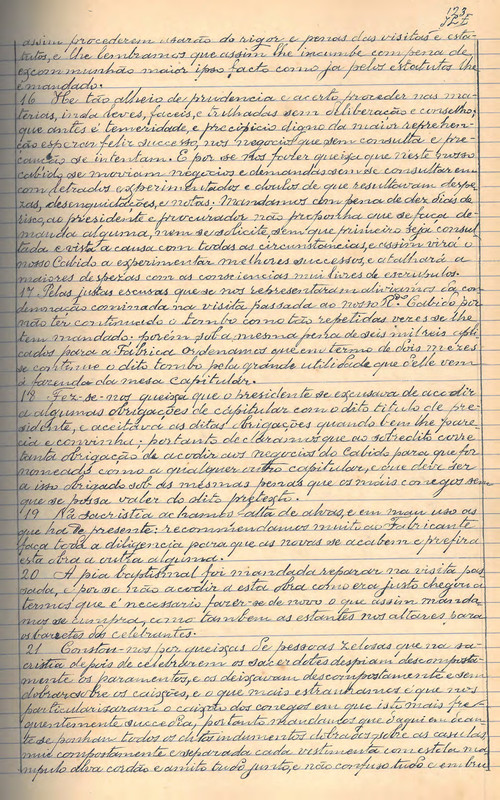 123
assim procederem usarão do rigor e penas das visitas e esta-
tutos, e lhe lembramos que assim lhe incumbe com pena de
excommunhão maior ipso facto como ja pelos estatutos lhe
é mandado.
16 He tão alheio de prudencia e acerto proceder nas ma-
terias, inda leves, faceis, e trilhadas sem diliberação e conselho,
que antes é temeridade, e precipicio digno da maior reprehen-
ção esperar feliz successo, nos negocios que sem consulta e pre-
caução se intentam. E por se nos fazer queixa que neste nosso
Cabido, se moviam negocios e demandas sem se consultarem
com letrados experimentados e doutos de que resultavam despe-
zas, desenquietações, e notas. Mandamos com pena de dez dias de
risco, ao presidente e procurador não proponha que se faça de-
manda alguma, nem se solicite, sem que primeiro seja consul-
tada e vista a causa com todas as circunstancias, e assim virá o
nosso Cabido a experimentar melhores successos, e atalhará a
maiores despezas com as consciencias mui livres de escrupulos.
17 Pelas justas escusas que se nos representaram aliviamos da con-
demnação cominada na visita passada ao nosso R.do Cabido por
não ter continuado o tombo como tão repetidas vezes se lhe
tem mandado: porém sob a mesma pena de seis mil reis apli-
cados para a Fabrica ordenamos que em termo de dois mezes
se continue o dito tombo pela grande utilidade que d'elle vem
á fazenda da mesa capitular.
18 Fez-se-nos queixa que o presidente se excusava de acodir
a algumas obrigações de capitular com o dito titulo de pre-
sidente, e aceitava as ditas obrigações quando bem lhe pare-
cia e convinha; portanto declaramos que ao sobredito corre
tanta obrigação de acodir aos negocios do Cabido para que for
nomeado como a qualquer outro capitular, e que deve ser
a isso obrigado sob as mesmas penas que os mais conegos sem
que se possa valer do dito pretexto.
19 Na sacristia achamos falta de alvas, e em mau uso as
que ha de presente: recommendamos muito ao Fabricante
faça toda a diligencia para que as novas se acabem e prefira
esta obra a outra alguma.
20 A pia baptismal foi mandada reparar na visita pas-
sada, e por se não acodir a esta obra como era justo chegou a
termos que é necessario fazer-se de novo o que assim manda-
mos se cumpra, como tambem as estantes nos altares para
os barretes dos celebrantes.
21 Constou-nos por queixas de pessoas zelosas que na sa-
cristia depois de celebrarem os sacerdotes despiam descomposta-
mente os paramentos, e os deixavam descompostamente e sem
dobrar sobre os caixões, e o que mais estranhamos é que nos
particularisaram o caixão dos conegos em que isto mais fre-
quentemente succedia, portanto mandamos que d'aqui em dean-
te se ponham todos os ditos indumentos dobrados sobre as casulas
mui compostamente e separada cada vestimenta com estola ma-
nipulo alva cordão e amito tudo junto, e não confuso tudo e embru